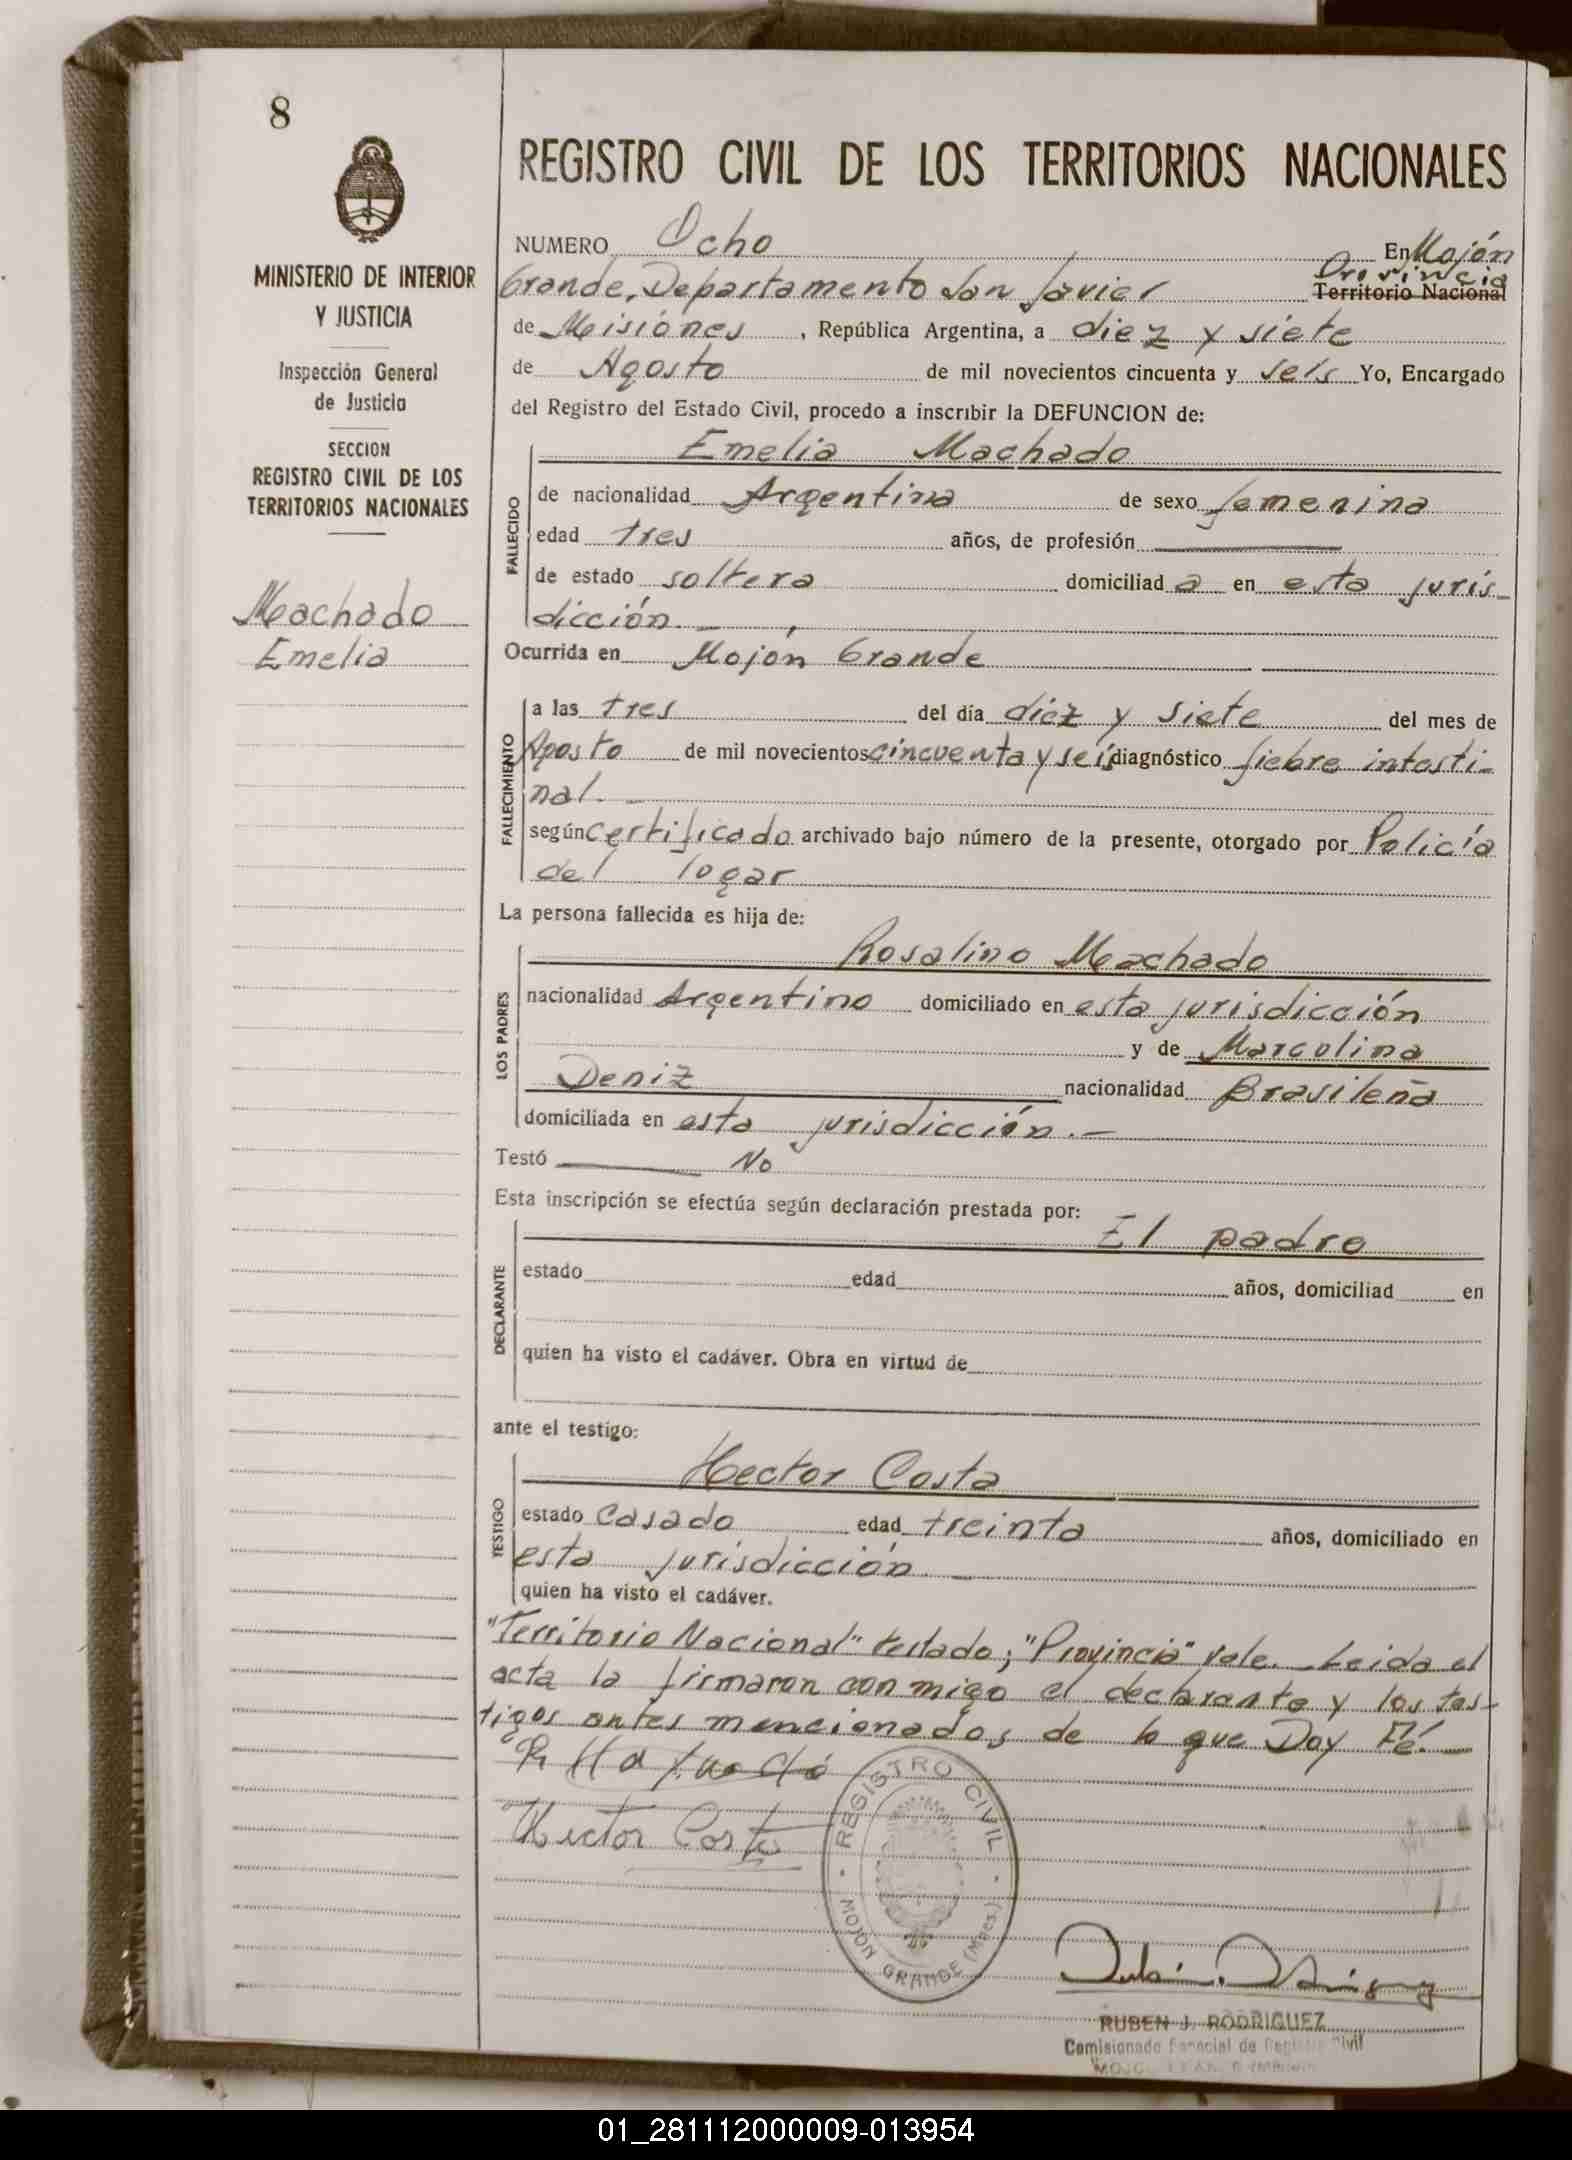 8
MINISTERIO DE INTERIOR
Y JUSTICIA
Inspección General
de Justicia
SECCION
REGISTRO CIVIL DE LOS
TERRITORIOS NACIONALES
Machado
Emelia
REGISTRO CIVIL DE LOS TERRITORIOS NACIONALES
NUMERO Ocho En Mojón
Provincia
Grande, Departamento San Javier Territorio Nacional
de Misiones, República Argentina, a diez y siete
de Agosto de mil novecientos cincuenta y seis Yo, Encargado
del Registro del Estado Civil, procedo a inscribir la DEFUNCION de:
Emelia Machado
FALLECIDO
de nacionalidad Argentina de sexo femenina
edad tres años, de profesión
de estado soltera domiciliad a en esta juris-
dicción.
Ocurrida en Mojón Grande
FALLECIMIENTO
a las tres del día diez y siete del mes de
Agosto de mil novecientos cincuenta y seis diagnóstico fiebre intesti-
nal.-
según certificado archivado bajo número de la presente, otorgado por Policía
del logar
La persona fallecida es hija de:
LOS PADRES
Rosalino Machado
nacionalidad Argentino domiciliado en esta jurisdicción
y de Marculina
Deniz nacionalidad Brasileña
domiciliada en esta jurisdicción.-
Testó No
Esta inscripción se efectúa según declaración prestada por:
DECLARANTE
El padre
estado edad años, domiciliad en
quien ha visto el cadáver. Obra en virtud de
ante el testigo:
TESTIGO
Hector Costa
estado Casado edad treinta años, domiciliado en
esta jurisdicción.-
quien ha visto el cadáver.
"Territorio Nacional" testado; "Provincia" vale.- Leida el
acta la firmaron conmigo el declarante y los tes-
tigos antes mencionados de lo que Doy Fé.-
Hector Costa
REGISTRO CIVIL
MOJON GRANDE (Mnes.)
RUBEN J. RODRIGUEZ
Comisionado Especial de Registro Civil
01_281112000009-013954